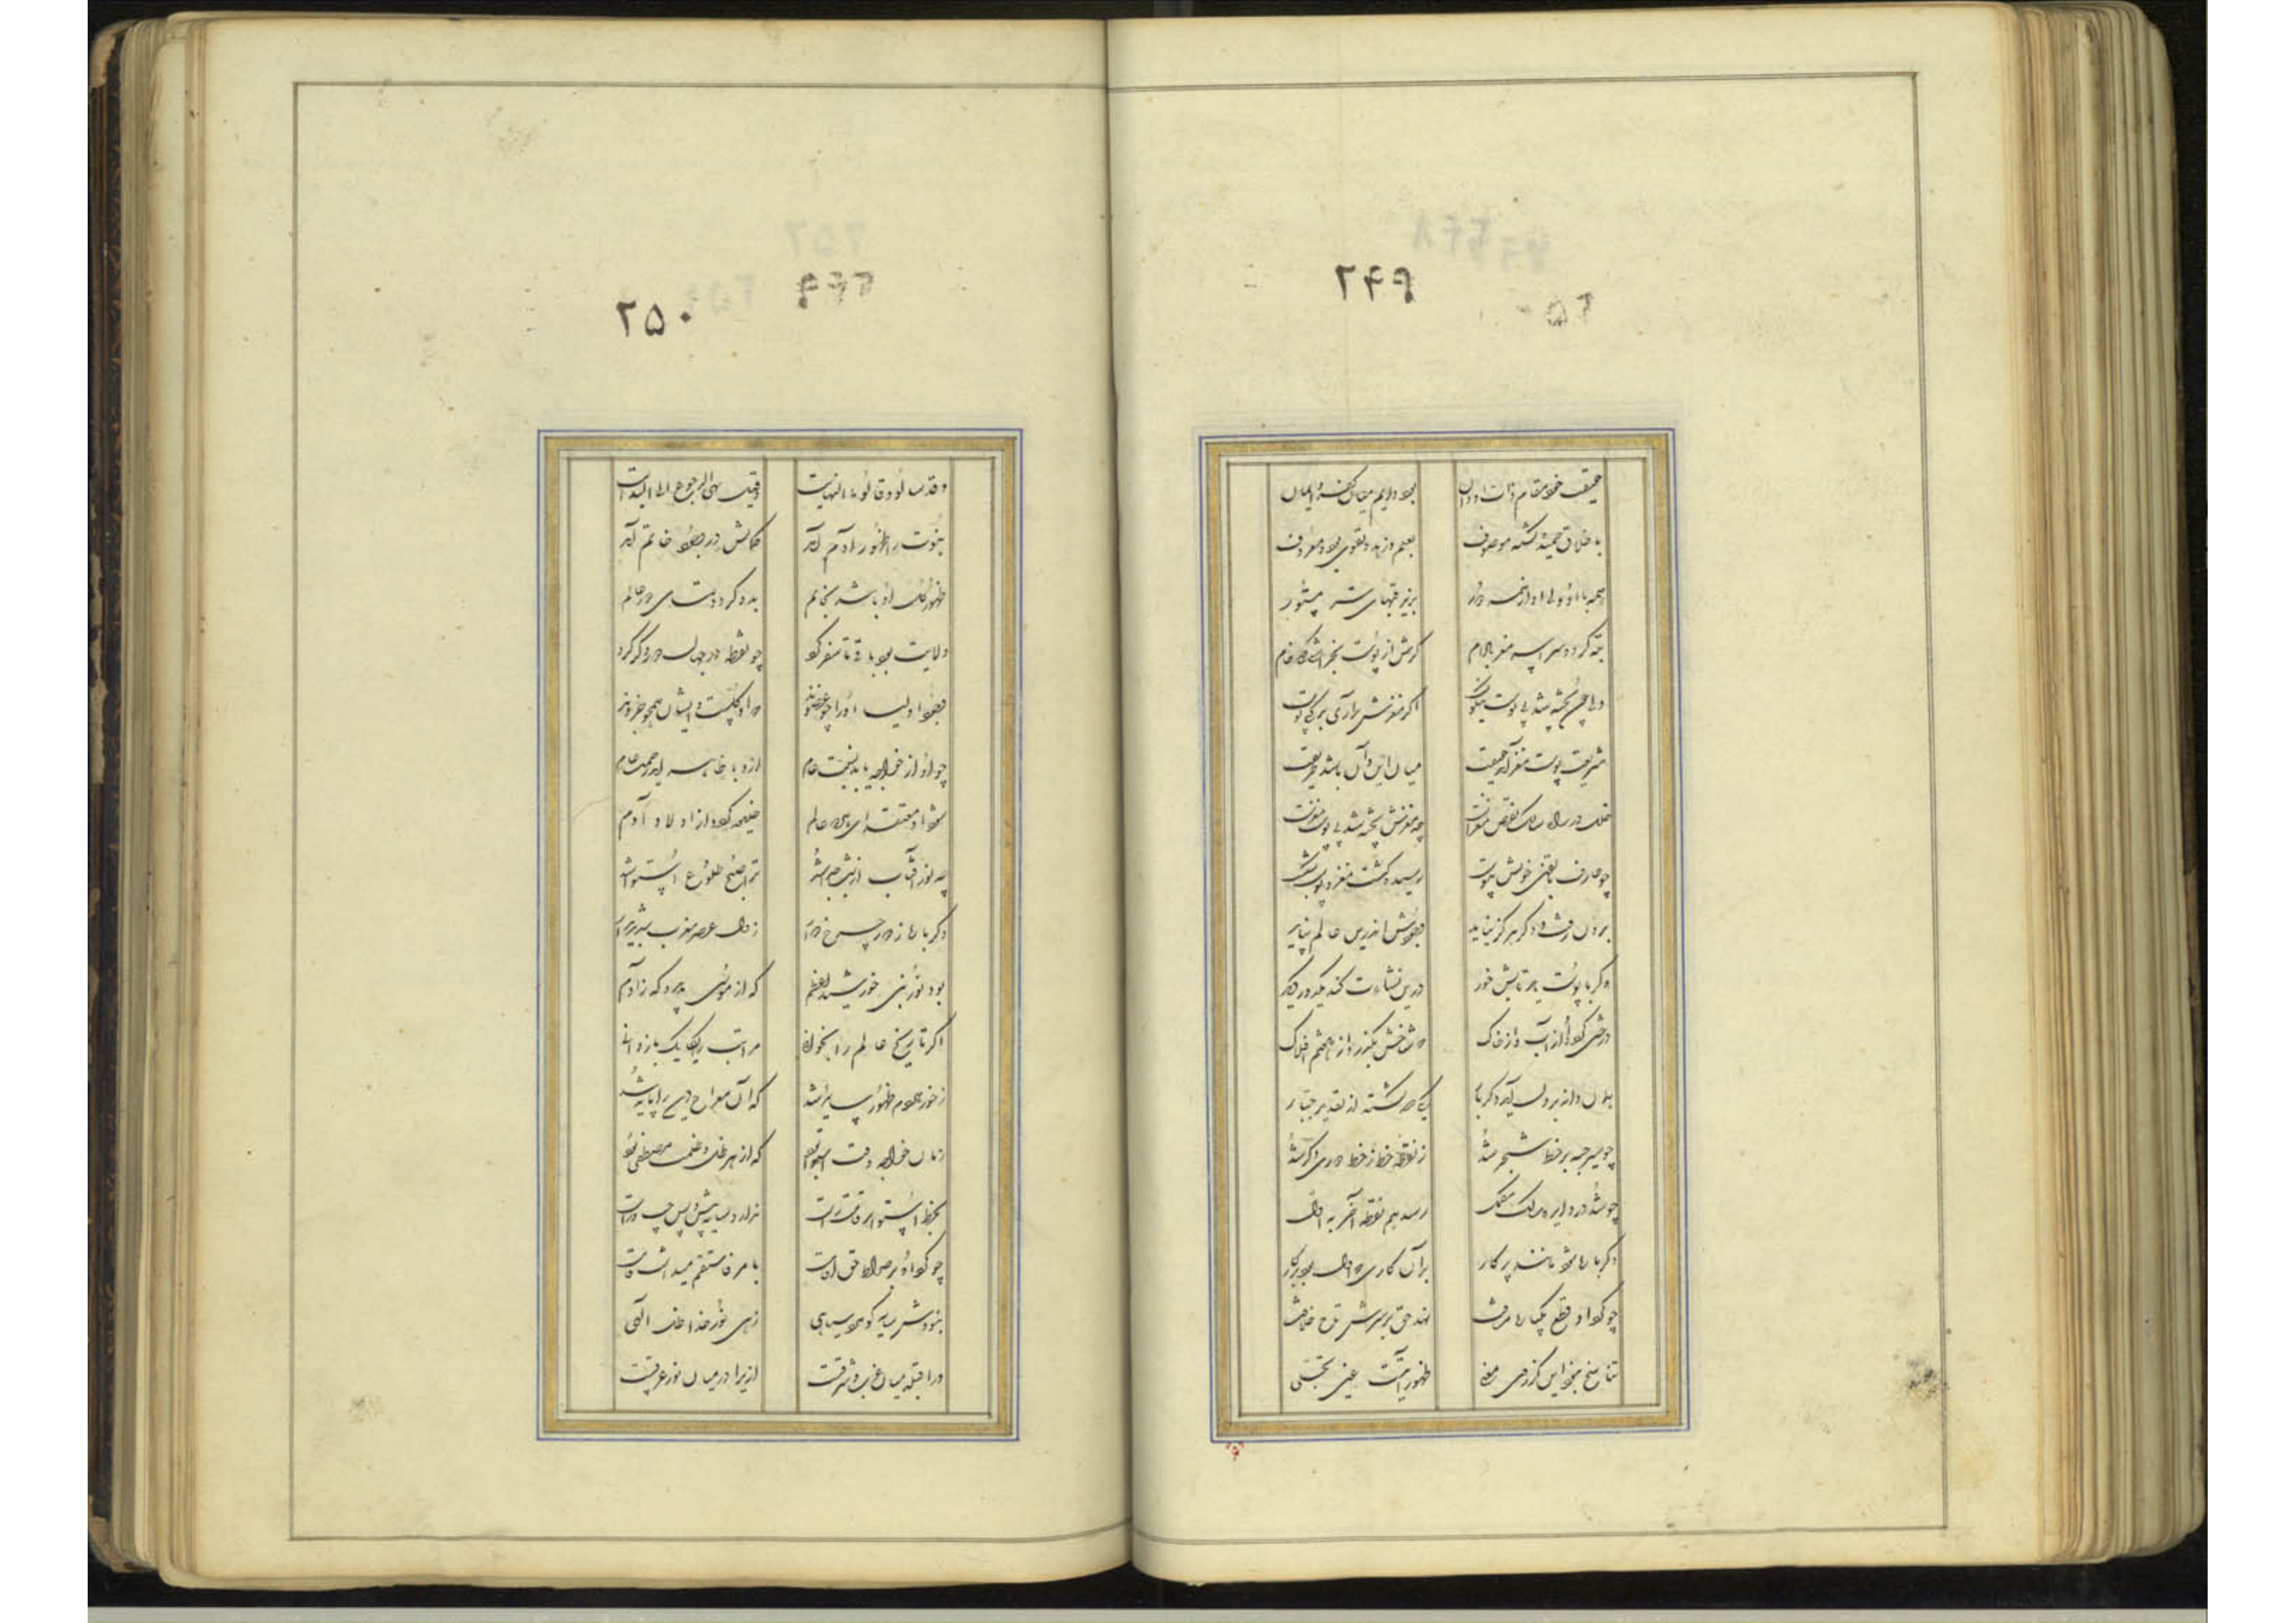 ۲۴۹
حقیقت خود مقام ذات او دان بود دایم میان کفر و ایمان
باخلاق حمیده گشته موصوف بعلم و زهد و تقوی بوده معروف
همه با او ولی او از همه دور بزیر قبهای ستر مستور
تبه گردد سراسر مغز بادام گرش از پوست بخراشی گه خام
ولی چون پخته شد بی پوست نیکوست اگر مغزش برآری برکنی پوست
شریعت پوست مغز آمد حقیقت میان این و آن باشد طریقت
خلل در راه سالک نقص مغزست چو مغزش پخته شد بی پوست نغزست
چو عارف با یقین خویش پیوست رسیده گشت مغز و پوست بشکست
برون رفت و دگر هرگز نیاید وجودش اندرین عالم نپاید
وگر با پوست یابد تابش خور درین نشات کند یک دور دیگر
درختی گردد او از آب و از خاک که شاخش بگذرد از هفتم افلاک
همان دانه برون آید دگر بار یکی صد گشته از تقدیر جبار
چو سیر حبه بر خط شجر شد ز نقطه خط ز خط دوری دگر شد
چو شد در دایره سالک مکمل رسد هم نقطه آخر به اول
دگر باره شود مانند پرکار برآن کاری که اول بود برکار
چو کرد او قطع یکباره مسافت نهد حق بر سرش تاج خلافت
تناسخ نبود این کز روی معنی ظهوراتست عین تجلی
۲۵۰
وقد سالوا وقالوا ما النهایت فقیل هی الرجوع الی البدایت
نبوت را ظهور از آدم آمد کمالش در وجود خاتم آمد
ظهور کل او باشد بخاتم بدو گردد تمامی دور عالم
ولایت بود باقی تا سفر کرد چو نقطه در جهان دوری دگر کرد
وجود اولیا او را چو عضوند که او کلست و ایشان همچو جزوند
چو او از خواجه یابد نسبت تام ازو با ظاهر آید رحمت عام
شود او مقتدای هر دو عالم خلیفه گردد از اولاد آدم
چو نور آفتاب از شب جدا شد ترا صبح و طلوع و استوا شد
دگر باره ز دور چرخ دوار زوال عصر و مغرب شد پدیدار
بود نور نبی خورشید اعظم که از موسی پدید و که ز آدم
اگر تاریخ عالم را بخوانی مراتب را یکایک باز دانی
ز خور هردم ظهور سایه شد که آن معراج دین را پایه شد
زمان خواجه وقت استوا بود که از هر ظل و ظلمت مصطفی بود
بخط استوا بر قامت راست ندارد سایه پیش و پس چپ و راست
چو کرد او بر صراط حق اقامت بامر فاستقم میداشت قامت
نبودش سایه کو دارد سیاهی زهی نور خدا ظل الهی
ورا قبله میان غرب و شرقست ازیرا در میان نور غرقست